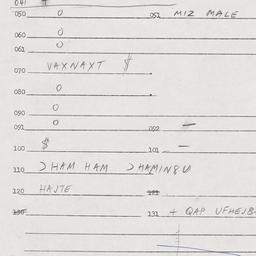 041 $
050 0 051 MIZ MALE
060 0
061 0
070 VAXNAXT $
080 0
090 0
091 0 092 —
100 $ 101 —
110 HAM HAM
120 HAJTE 121
130 131 + QAP